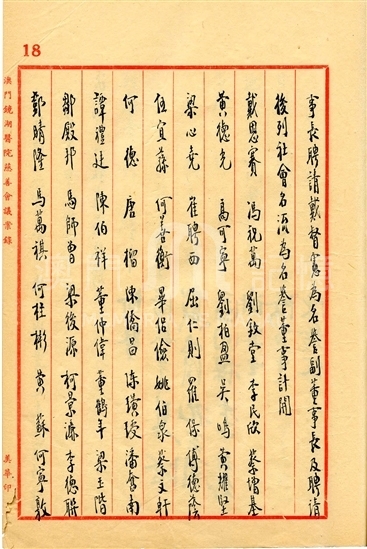 18
事長聘請戴督憲為名譽副董事長及聘請
後列社會名流為名譽董事計開
戴恩賽 馮祝萬 劉敘堂 李民欣 蔡增基
黃德光 高可寧 劉柏盈 吳鳴 黃耀堅
梁心堯 崔聘西 屈仁則 羅保 傅德蔭
伍宜蓀 何善衡 畢侶儉 姚伯泉 蔡文軒
何德 唐榴 陳僑昌 陳璸 潘奮南
譚禮廷 陳伯祥 董仲偉 董錫年 梁玉階
鄒殿邦 馬師曾 梁後源 柯景濂 李德聯
鄭晴隆 馬萬祺 何桂彬 黃蘇 何寧敦
澳門鏡湖醫院慈善會議案錄
美華印